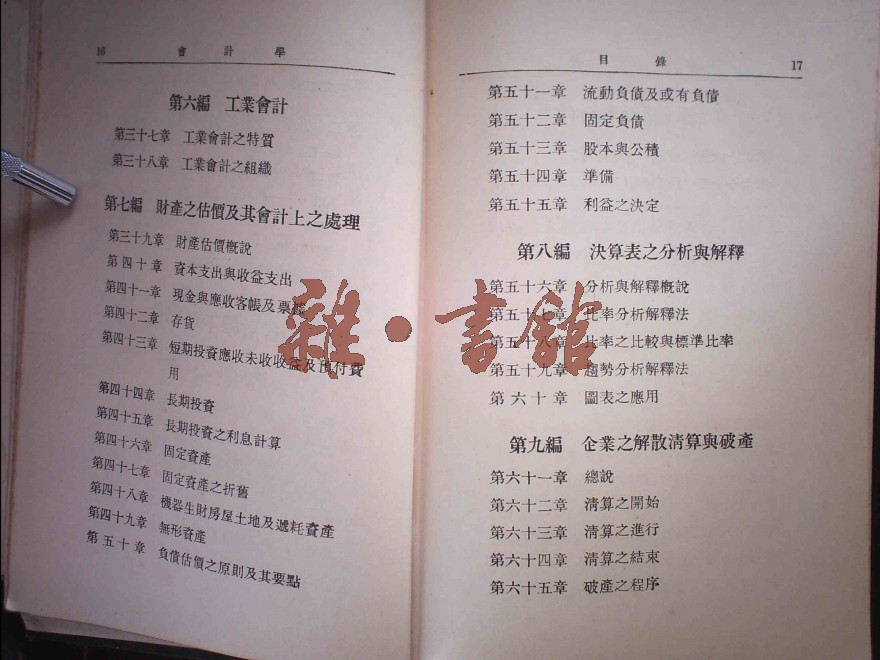 16 會計學
第六編 工業會計
第三十七章 工業會計之特質
第三十八章 工業會計之組織
第七編 財產之估價及其會計上之處理
第三十九章 財產估價概說
第四十章 資本支出與收益支出
第四十一章 現金與應收客帳及票據
第四十二章 存貨
第四十三章 短期投資應收未收收益及預付費
用
第四十四章 長期投資
第四十五章 長期投資之利息計算
第四十六章 固定資產
第四十七章 固定資產之折舊
第四十八章 機器生財房屋土地及遞耗資產
第四十九章 無形資產
第五十章 負債估價之原則及其要點
目錄 17
第五十一章 流動負債及或有負債
第五十二章 固定負債
第五十三章 股本與公積
第五十四章 準備
第五十五章 利益之決定
第八編 決算表之分析與解釋
第五十六章 分析與解釋概說
第五十七章 比率分析解釋法
第五十八章 比率之比較與標準比率
第五十九章 趨勢分析解釋法
第六十章 圖表之應用
第九編 企業之解散清算與破產
第六十一章 總說
第六十二章 清算之開始
第六十三章 清算之進行
第六十四章 清算之結束
第六十五章 破產之程序
雜·書館